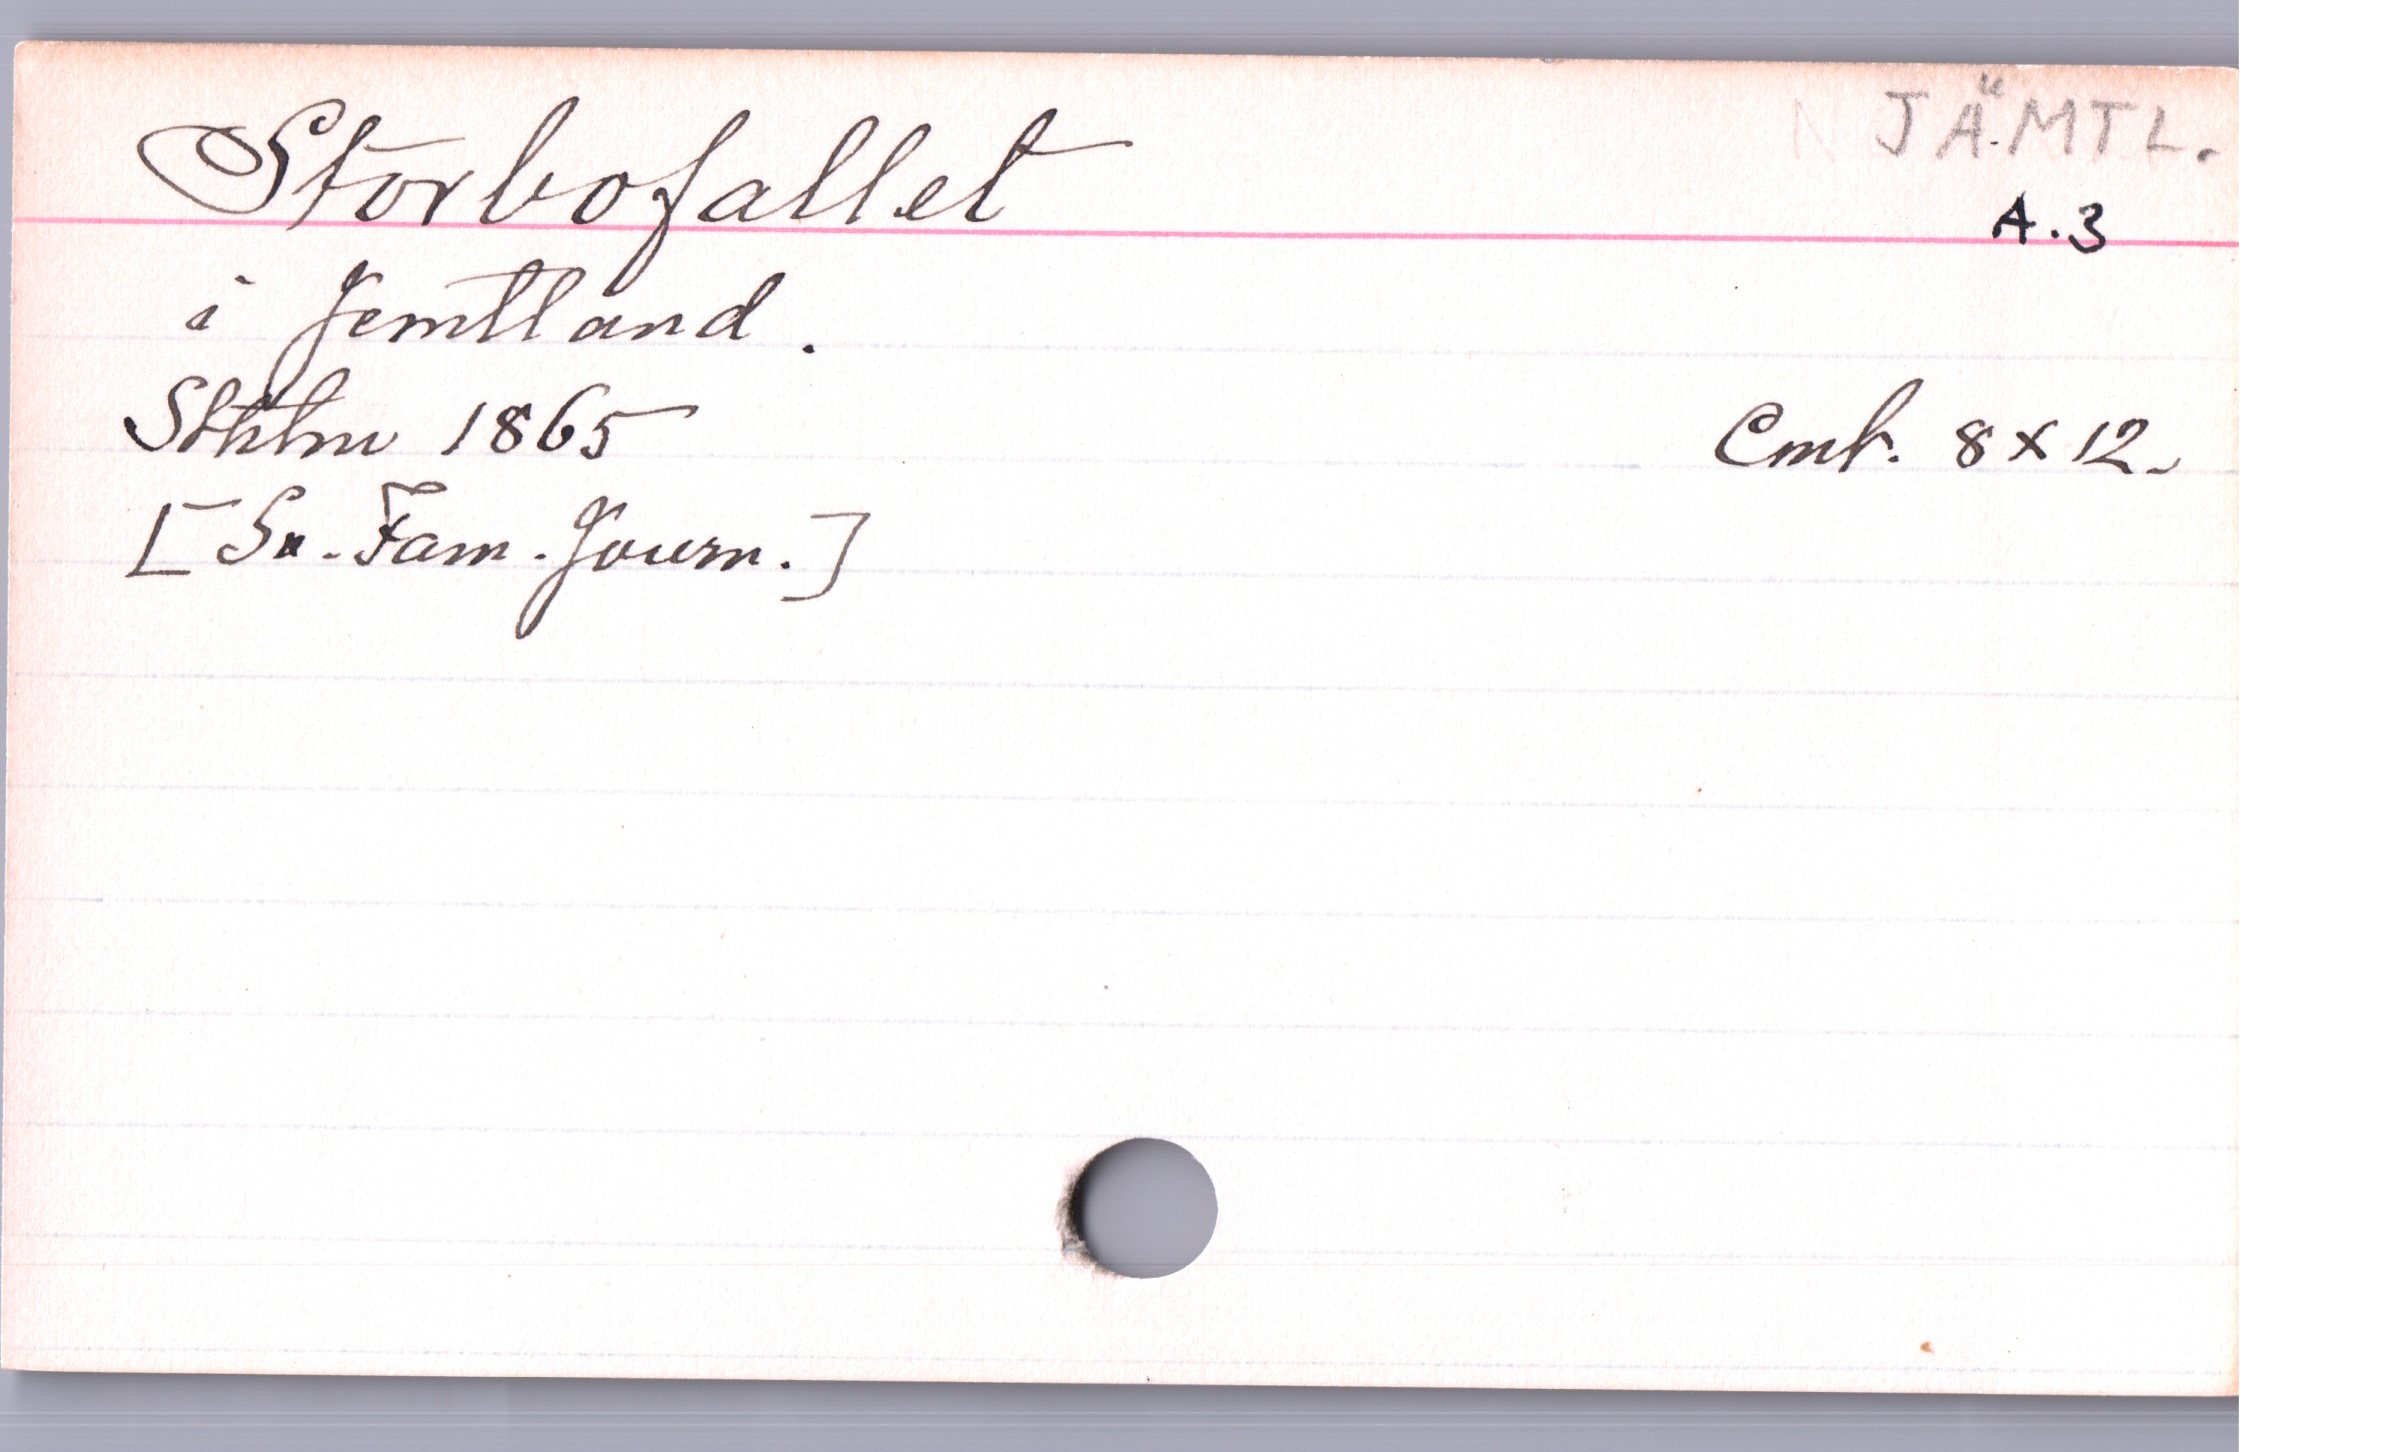 Storbofallet
JÄMTL.
A.3
i Jemtland.
Sthlm 1865
Cmt. 8 x 12.
[Sv. Fam. Journ.]